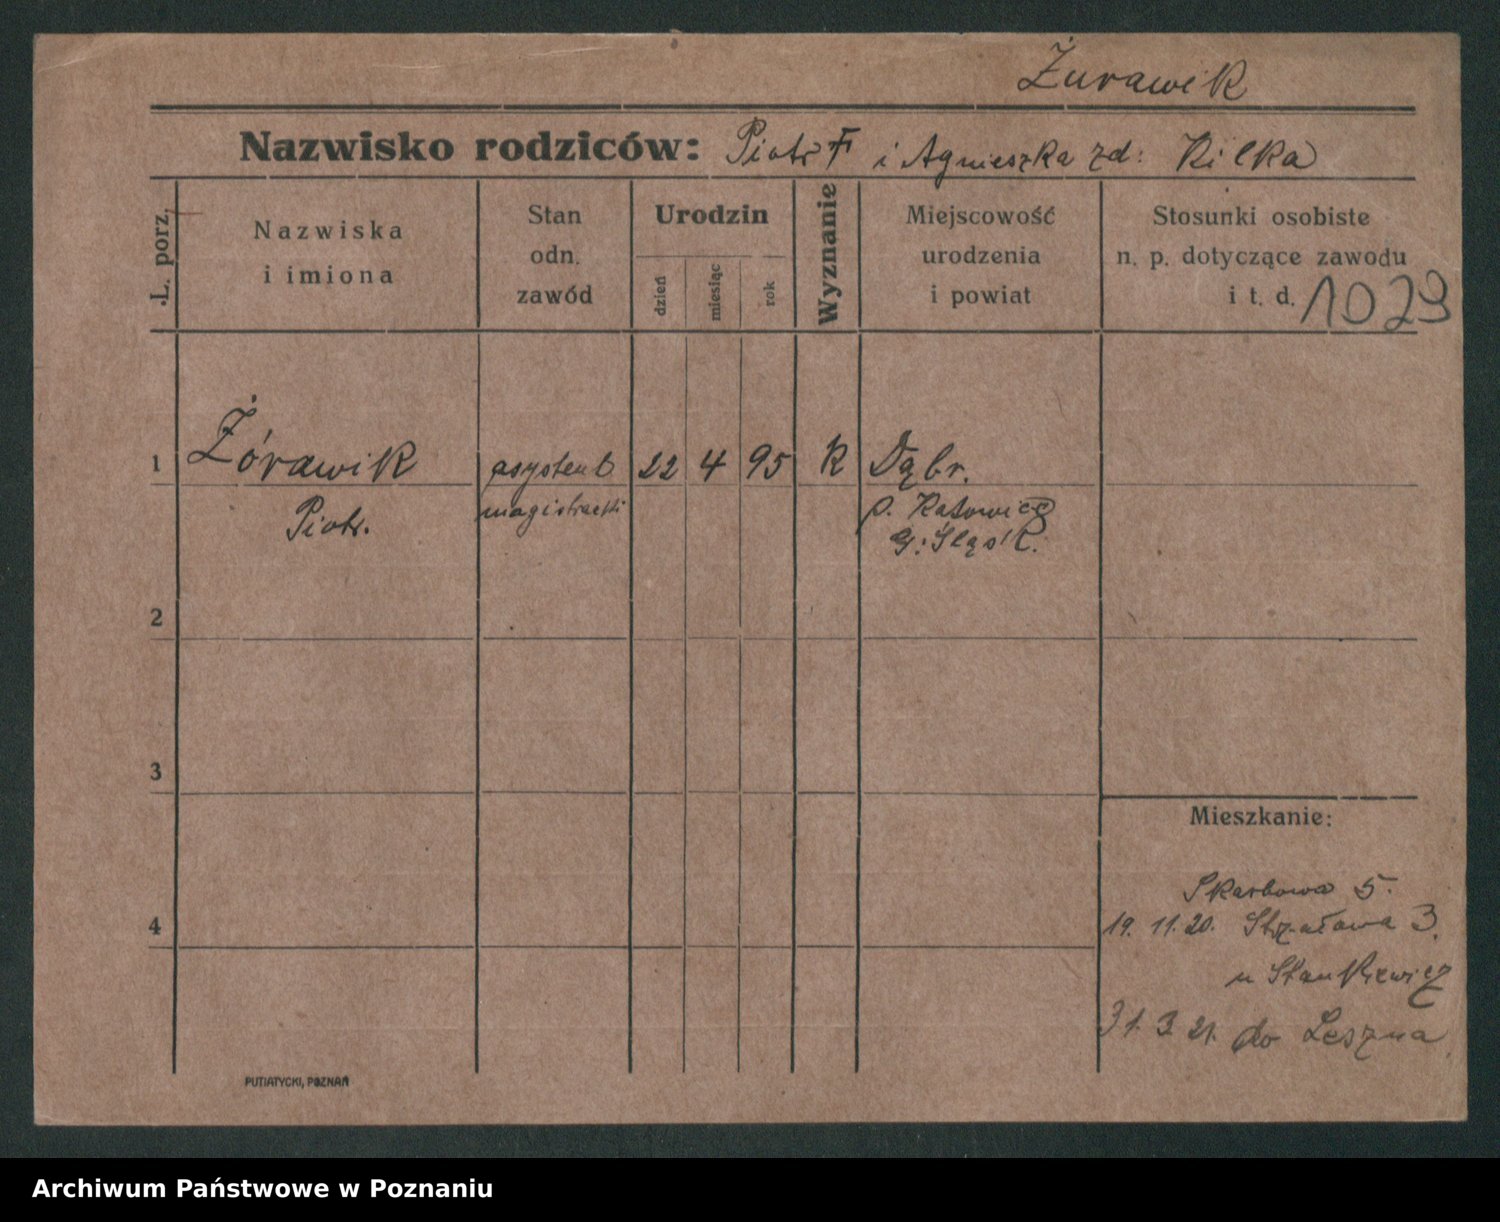 Żurawik
Nazwisko rodziców: Piotr i Agnieszka zd: Kilka
L. porz.
Nazwiska
i imiona
Stan
odn.
zawód
Urodzin
dzień
miesiąc
rok
Wyznanie
Miejscowość
urodzenia
i powiat
Stosunki osobiste
n. p. dotyczące zawodu
i t. d. 1029
1 Żórawik asystent 22 4 95 K Dąbr.
Piotr. magistracki p. Katowice
G: Śląsk.
2
3
Mieszkanie:
Skarbowa 5.
4 19. 11. 20. Strzałowa 3.
u Stankiewicz
31. 3. 21. do Leszna
PUTIATYCKI, POZNAŃ
Archiwum Państwowe w Poznaniu